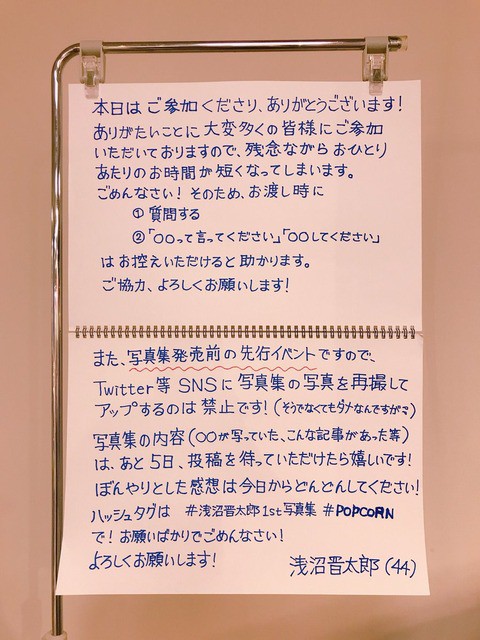 本日は ご参加くださり、ありがとうございます!
ありがたいことに 大変多くの皆様にご参加
いただいておりますので、残念ながらおひとり
あたりのお時間が短くなってしまいます。
ごめんなさい! そのため、お渡し時に
① 質問する
② 「○○って言ってください」「○○してください」
はお控えいただけると助かります。
ご協力、よろしくお願いします!
また、写真集発売前の先行イベントですので、
Twitter等 SNSに写真集の写真を再撮して
アップするのは禁止です! (そうでなくてもダメなんですがネ)
写真集の内容(○○が写っていた、こんな記事があった 等)
は、あと5日、投稿を待っていただけたら嬉しいです!
ぼんやりとした感想は今日からどんどんしてください!
ハッシュタグは #浅沼晋太郎1st写真集 #POPCORN
で! お願いばかりでごめんなさい!
よろしくお願いします! 浅沼晋太郎(44)